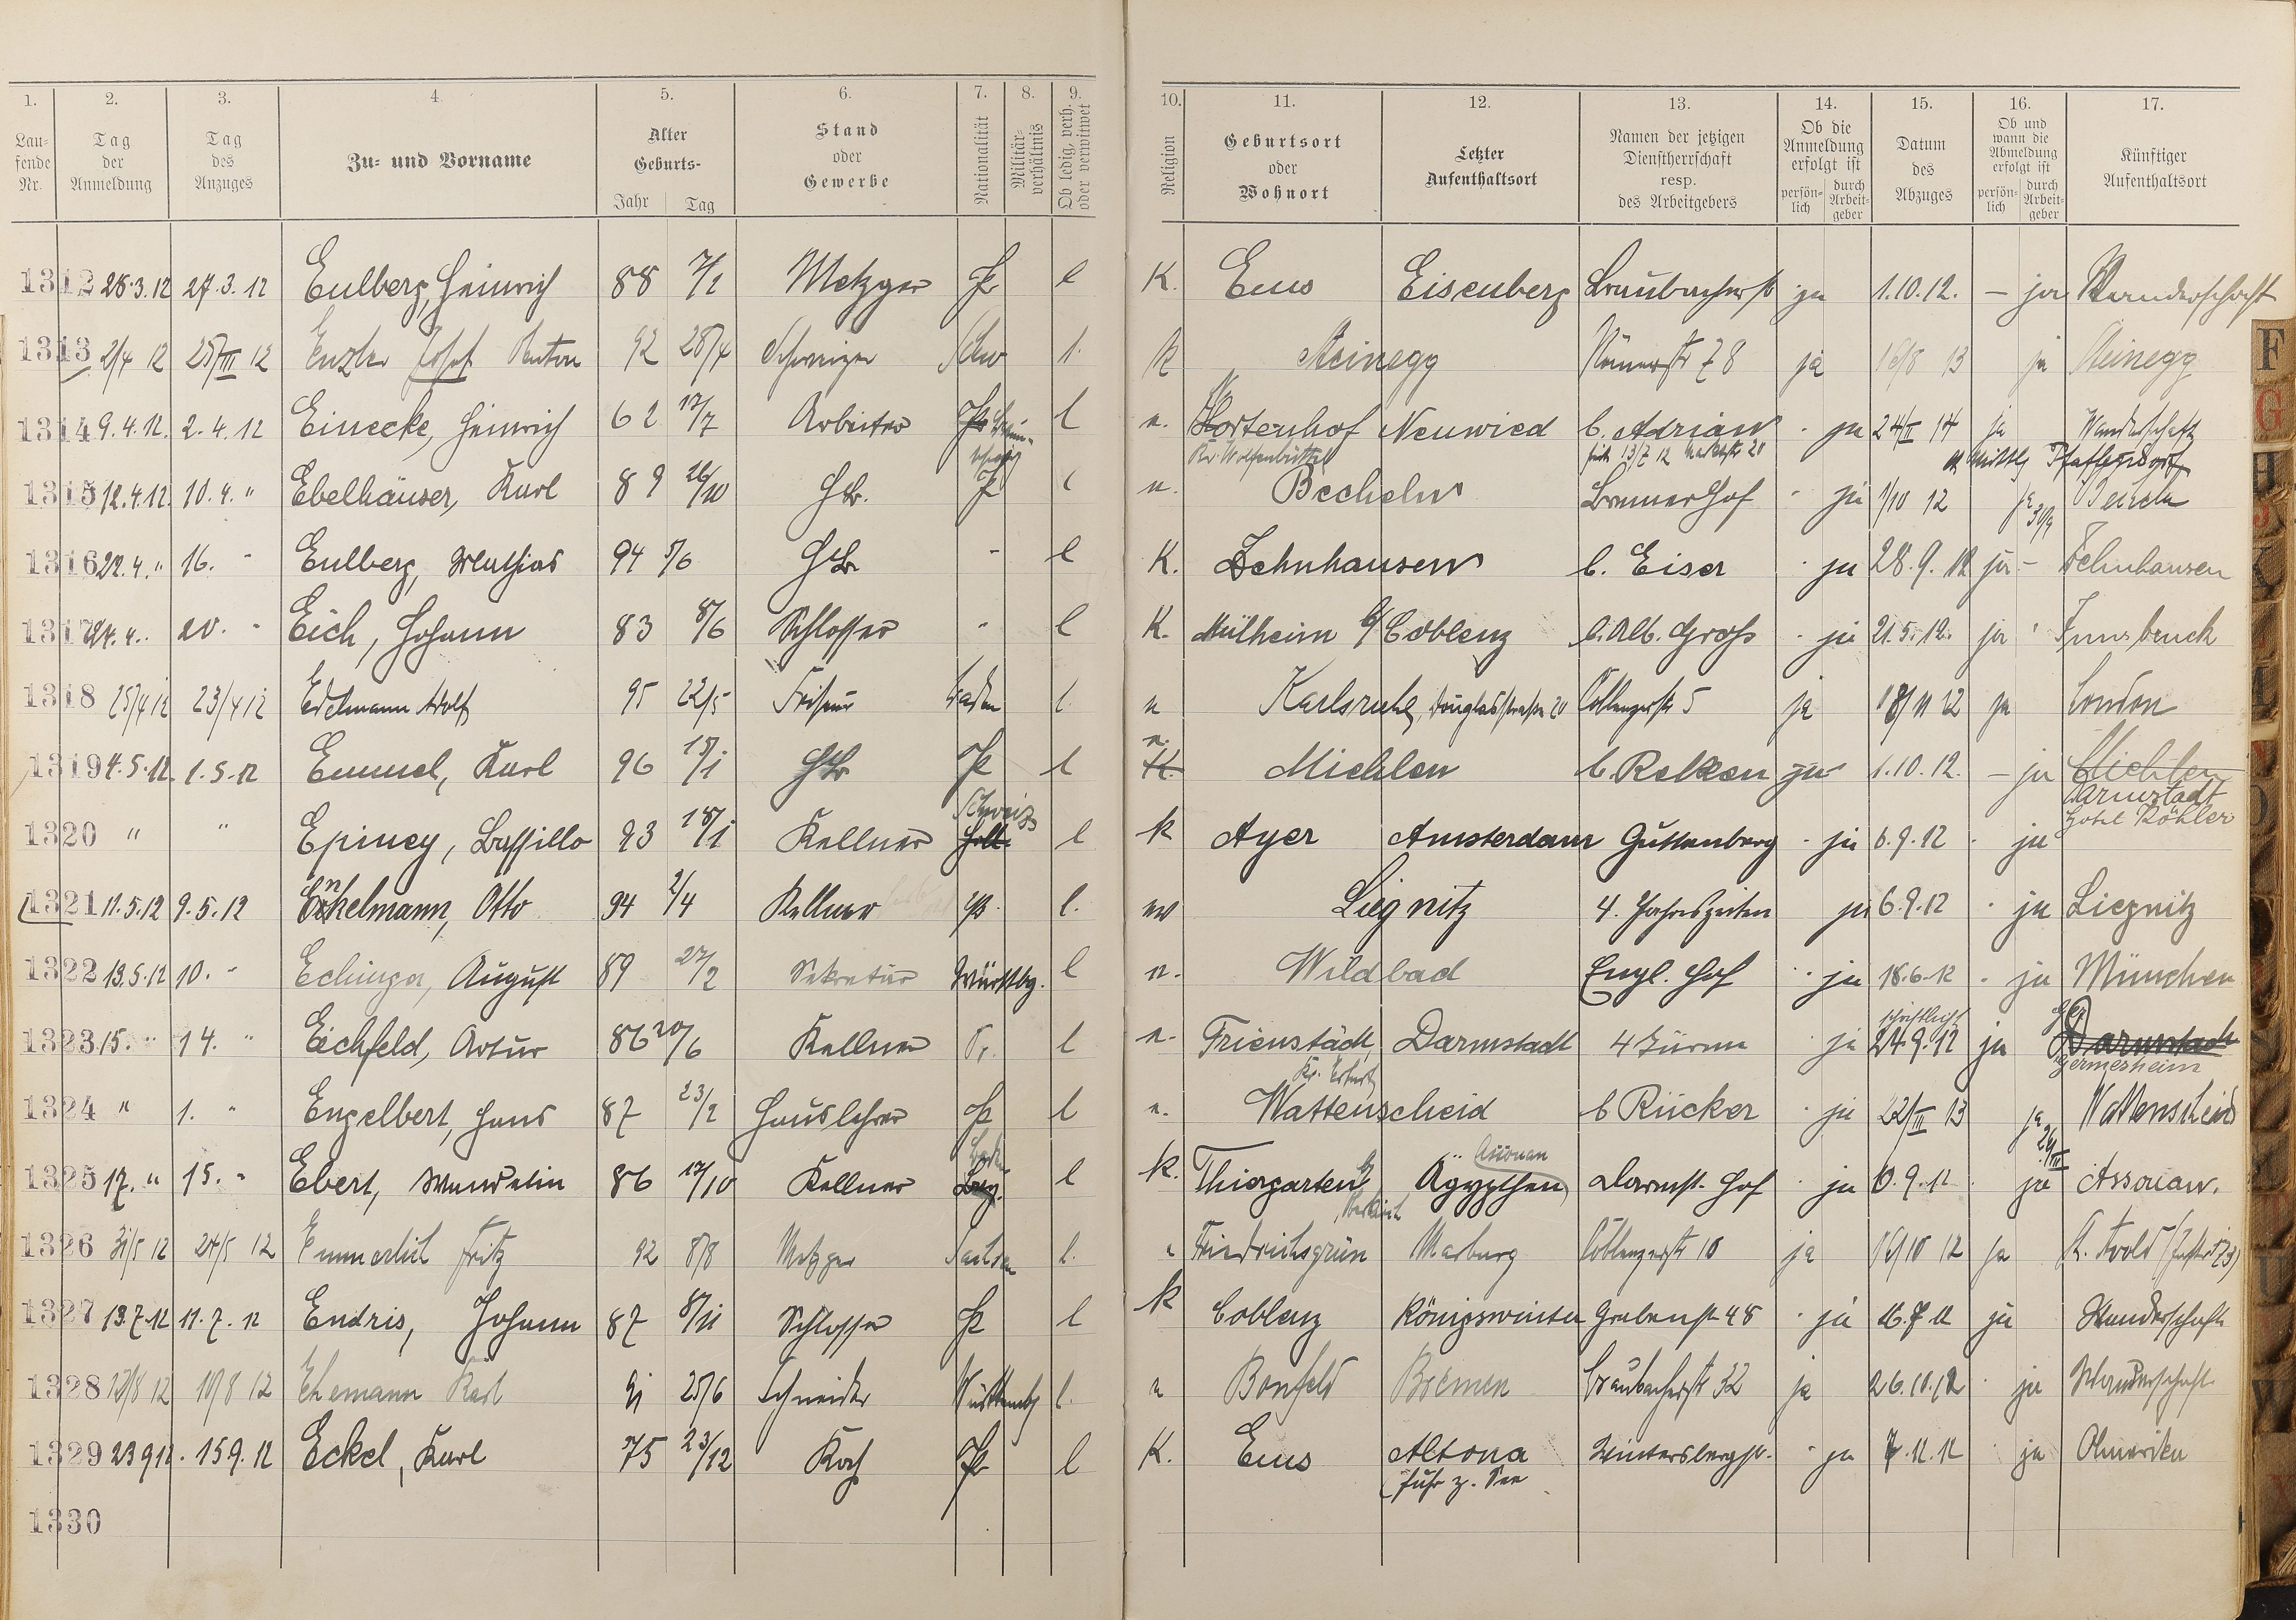 1. 2. 3. 4. 5. 6. 7. 8. 9. 10. 11. 12. 13. 14. 15. 16. 17.
Laufende Nr. | Tag der Anmeldung | Tag des Anzuges | Zu- und Vorname | Alter Geburts- Jahr Tag | Stand oder Gewerbe | Nationalität | Militärverhältnis | Ob ledig, verh. oder verwitwet | Religion | Geburtsort oder Wohnort | Letzter Aufenthaltsort | Namen der jetzigen Dienstherrschaft resp. des Arbeitgebers | Ob die Anmeldung erfolgt ist persönlich durch Arbeitgeber | Datum des Abzuges | Ob und wann die Abmeldung erfolgt ist persönlich durch Arbeitgeber | Künftiger Aufenthaltsort
1312 28.3.12 27.3.12 Eulberg, Heinrich 88 7/1 Metzger Pr l K. Ems Eisenberg Braubacherstr ja 1.10.12. – ja Wanderschaft
1313 2/4 12 25/III 12 Enzler Josef Anton 92 28/4 Schweizer Schw l. k Steinegg Römerstr 78 ja 16/8 13 ja Steinegg
1314 9.4.12. 2.4.12 Einecke, Heinrich 62 17/7 Arbeiter l n. Hortenhof Neuwied b. Adrian ja 24/II 14 ja Wanderschaft
Kr. Wolfenbüttel 13/7 12 Marktstr 20
1315 12.4.12. 10.4. " Ebelhäuser, Karl 89 26/10 Hb. Pr l n. Becheln Bremerhof ja 1/10 12 ja 30/9 Becheln
Pfaffendorf
1316 22.4. " 16. " Eulberg, Mathias 94 5/6 Hb - l K. Zehnhausen b. Eiser ja 28.9.12 ja – Zehnhausen
1317 24.4. 20. " Eich, Johann 83 8/6 Schlosser " l K. Mülheim b/ Coblenz b. Alb. Groß ja 21.5.12. ja Innsbruck
1318 25/4 12 23/4 12 Edelmann Adolf 95 22/5 Friseur Baden l. n Karlsruhe, Douglasstraße 20 Coblenzerstr 5 ja 18/11 12 ja London
1319 4.5.12. 1.5.12 Emmel, Karl 96 15/1 Hb Pr l n. K. Miehlen b. Relken ja 1.10.12. – ja Miehlen
1320 " " Epiney, Bassillo 93 18/1 Kellner Schweiz Holl. l k Ayer Amsterdam Guttenberg ja 6.9.12 ja Darmstadt Hotel Köhler
1321 11.5.12 9.5.12 Enkelmann, Otto 94 2/4 Kellner Pr. l. ev Liegnitz 4. Jahreszeiten ja 6.9.12 ja Liegnitz
1322 13.5.12 10. " Echinger, August 89 27/2 Sekretär Württbg. l n. Wildbad Engl. Hof ja 18.6.12 ja München
1323 15. " 14. " Eichfeld, Artur 86 20/6 Kellner Pr. l n. Frienstädt, Kr. Erfurt Darmstadt 4 Türme ja schriftlich 24.9.12 ja Darmstadt Germersheim
1324 " 1. " Engelbert, Hans 87 23/2 Hauslehrer Pr l n. Wattenscheid b Rücker ja 22/III 13 ja 26/III Wattenscheid
1325 17. " 15. " Ebert, Wendelin 86 17/10 Kellner Baden l k. Thiergarten Ägypthen Assouan Darmst. Hof ja 6.9.12 ja Assouan.
1326 31/5 12 24/5 12 Emmerlich Fritz 92 8/8 Metzger Sachsen l. Friedrichsgrün Marburg Coblenzerstr 10 ja 16/10 12 ja
1327 13.7.12 11.7.12 Endris, Johann 87 8/11 Schlosser Pr l k Coblenz Königswinter Grabenstr 48 ja 16.7.12 ja Wanderschaft
1328 13/8 12 10/8 12 Ehemann Karl 91 25/6 Schneider Württembg l. n Bonfeld Bremen Braubacherstr 32 ja 26.10.12 ja Wanderschaft
1329 23 9 12. 15 9. 12 Eckel, Karl 75 23/12 Koch Pr l K. Ems Altona Wintersbergstr. ja 7.12.12 ja Amerika
(fuhr z. See
1330
F
G
H
J
K